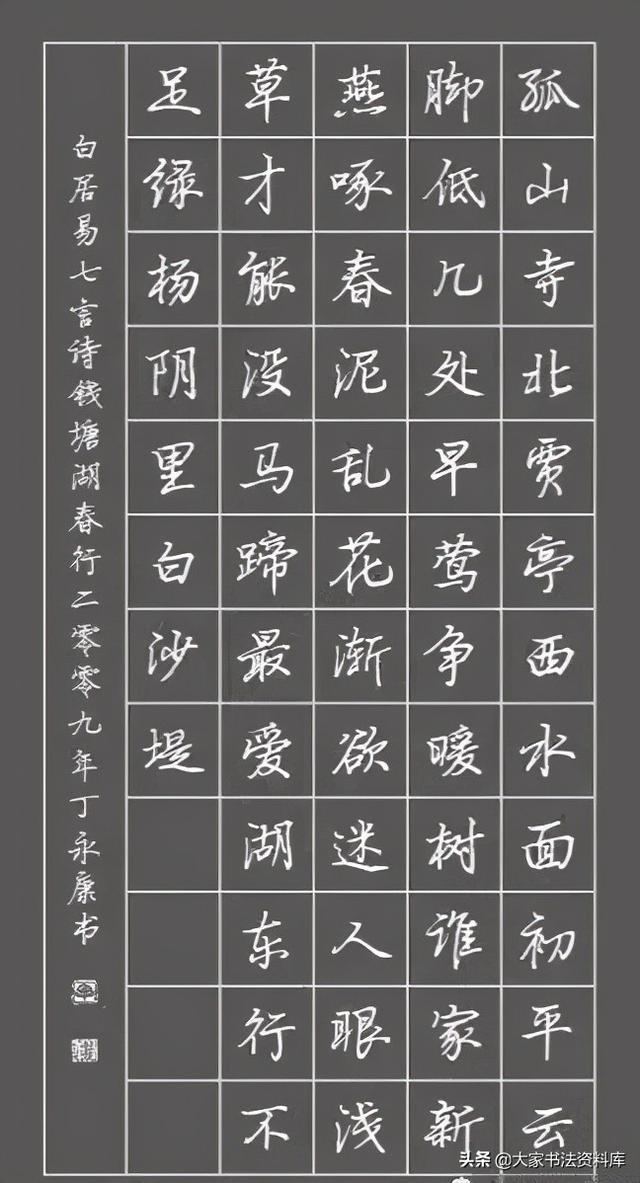 孤山寺北贾亭西水面初平云
脚低几处早莺争暖树谁家新
燕啄春泥乱花渐欲迷人眼浅
草才能没马蹄最爱湖东行不
足绿杨阴里白沙堤
白居易七言诗錢塘湖春行二零零九年丁永康书
头条@大家书法资料库